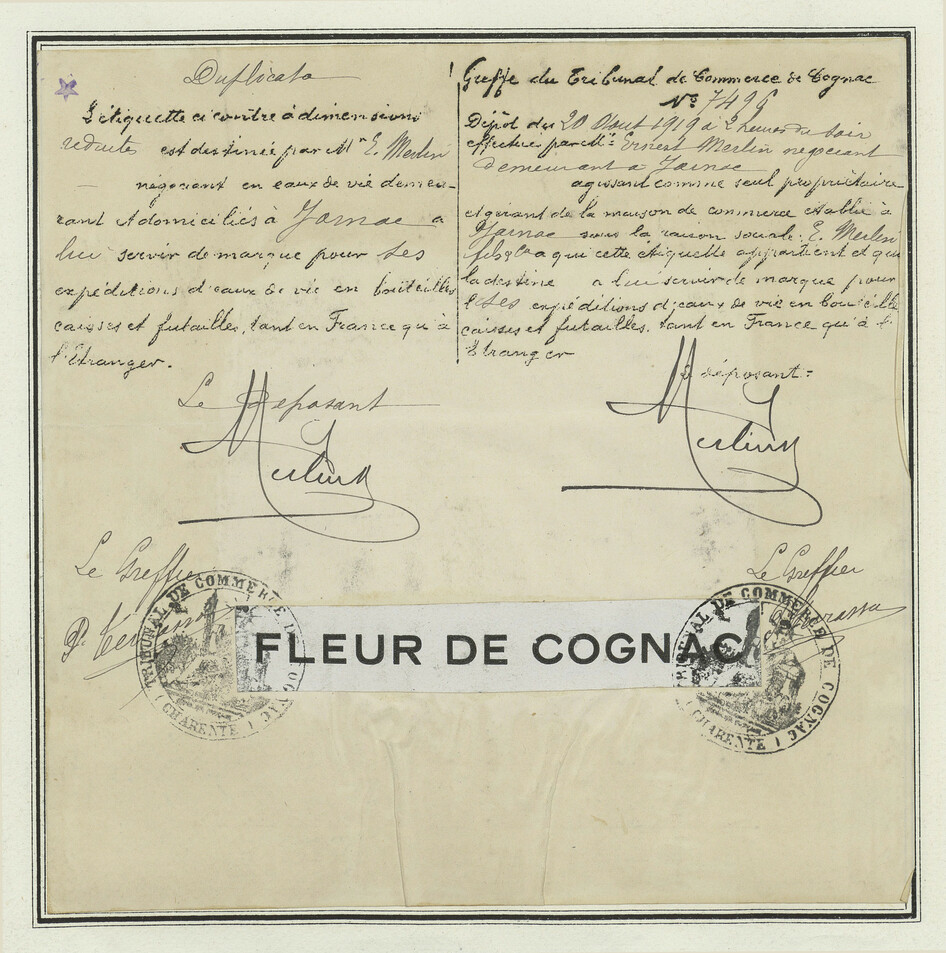 Duplicata
L'étiquette ci contre à dimensions
réduites est destinée par Mr E. Merlin
négociant en eaux de vie demeu-
rant & domiciliés à Jarnac a
lui servir de marque pour ses
expéditions d'eaux de vie en bouteilles
caisses et futailles, tant en France qu'à
l'Etranger.
Le Déposant
Merlin
Le Greffier
Greffe du Tribunal de Commerce de Cognac
No 7496
Dépôt du 20 Aout 1919 à 2 heures du soir
effectué par M. Ernest Merlin négociant
demeurant à Jarnac
agissant comme seul propriétaire
et gérant de la maison de commerce établie à
Jarnac sous la raison sociale: E. Merlin
fils & Co a qui cette étiquette appartient et qui
la destine a lui servir de marque pour
ses expéditions d'eaux de vie en bouteilles
caisses et futailles, tant en France qu'à l'
Etranger
Le déposant:
Merlin
Le Greffier
FLEUR DE COGNAC
TRIBUNAL DE COMMERCE DE COGNAC
(CHARENTE)
TRIBUNAL DE COMMERCE DE COGNAC
(CHARENTE)